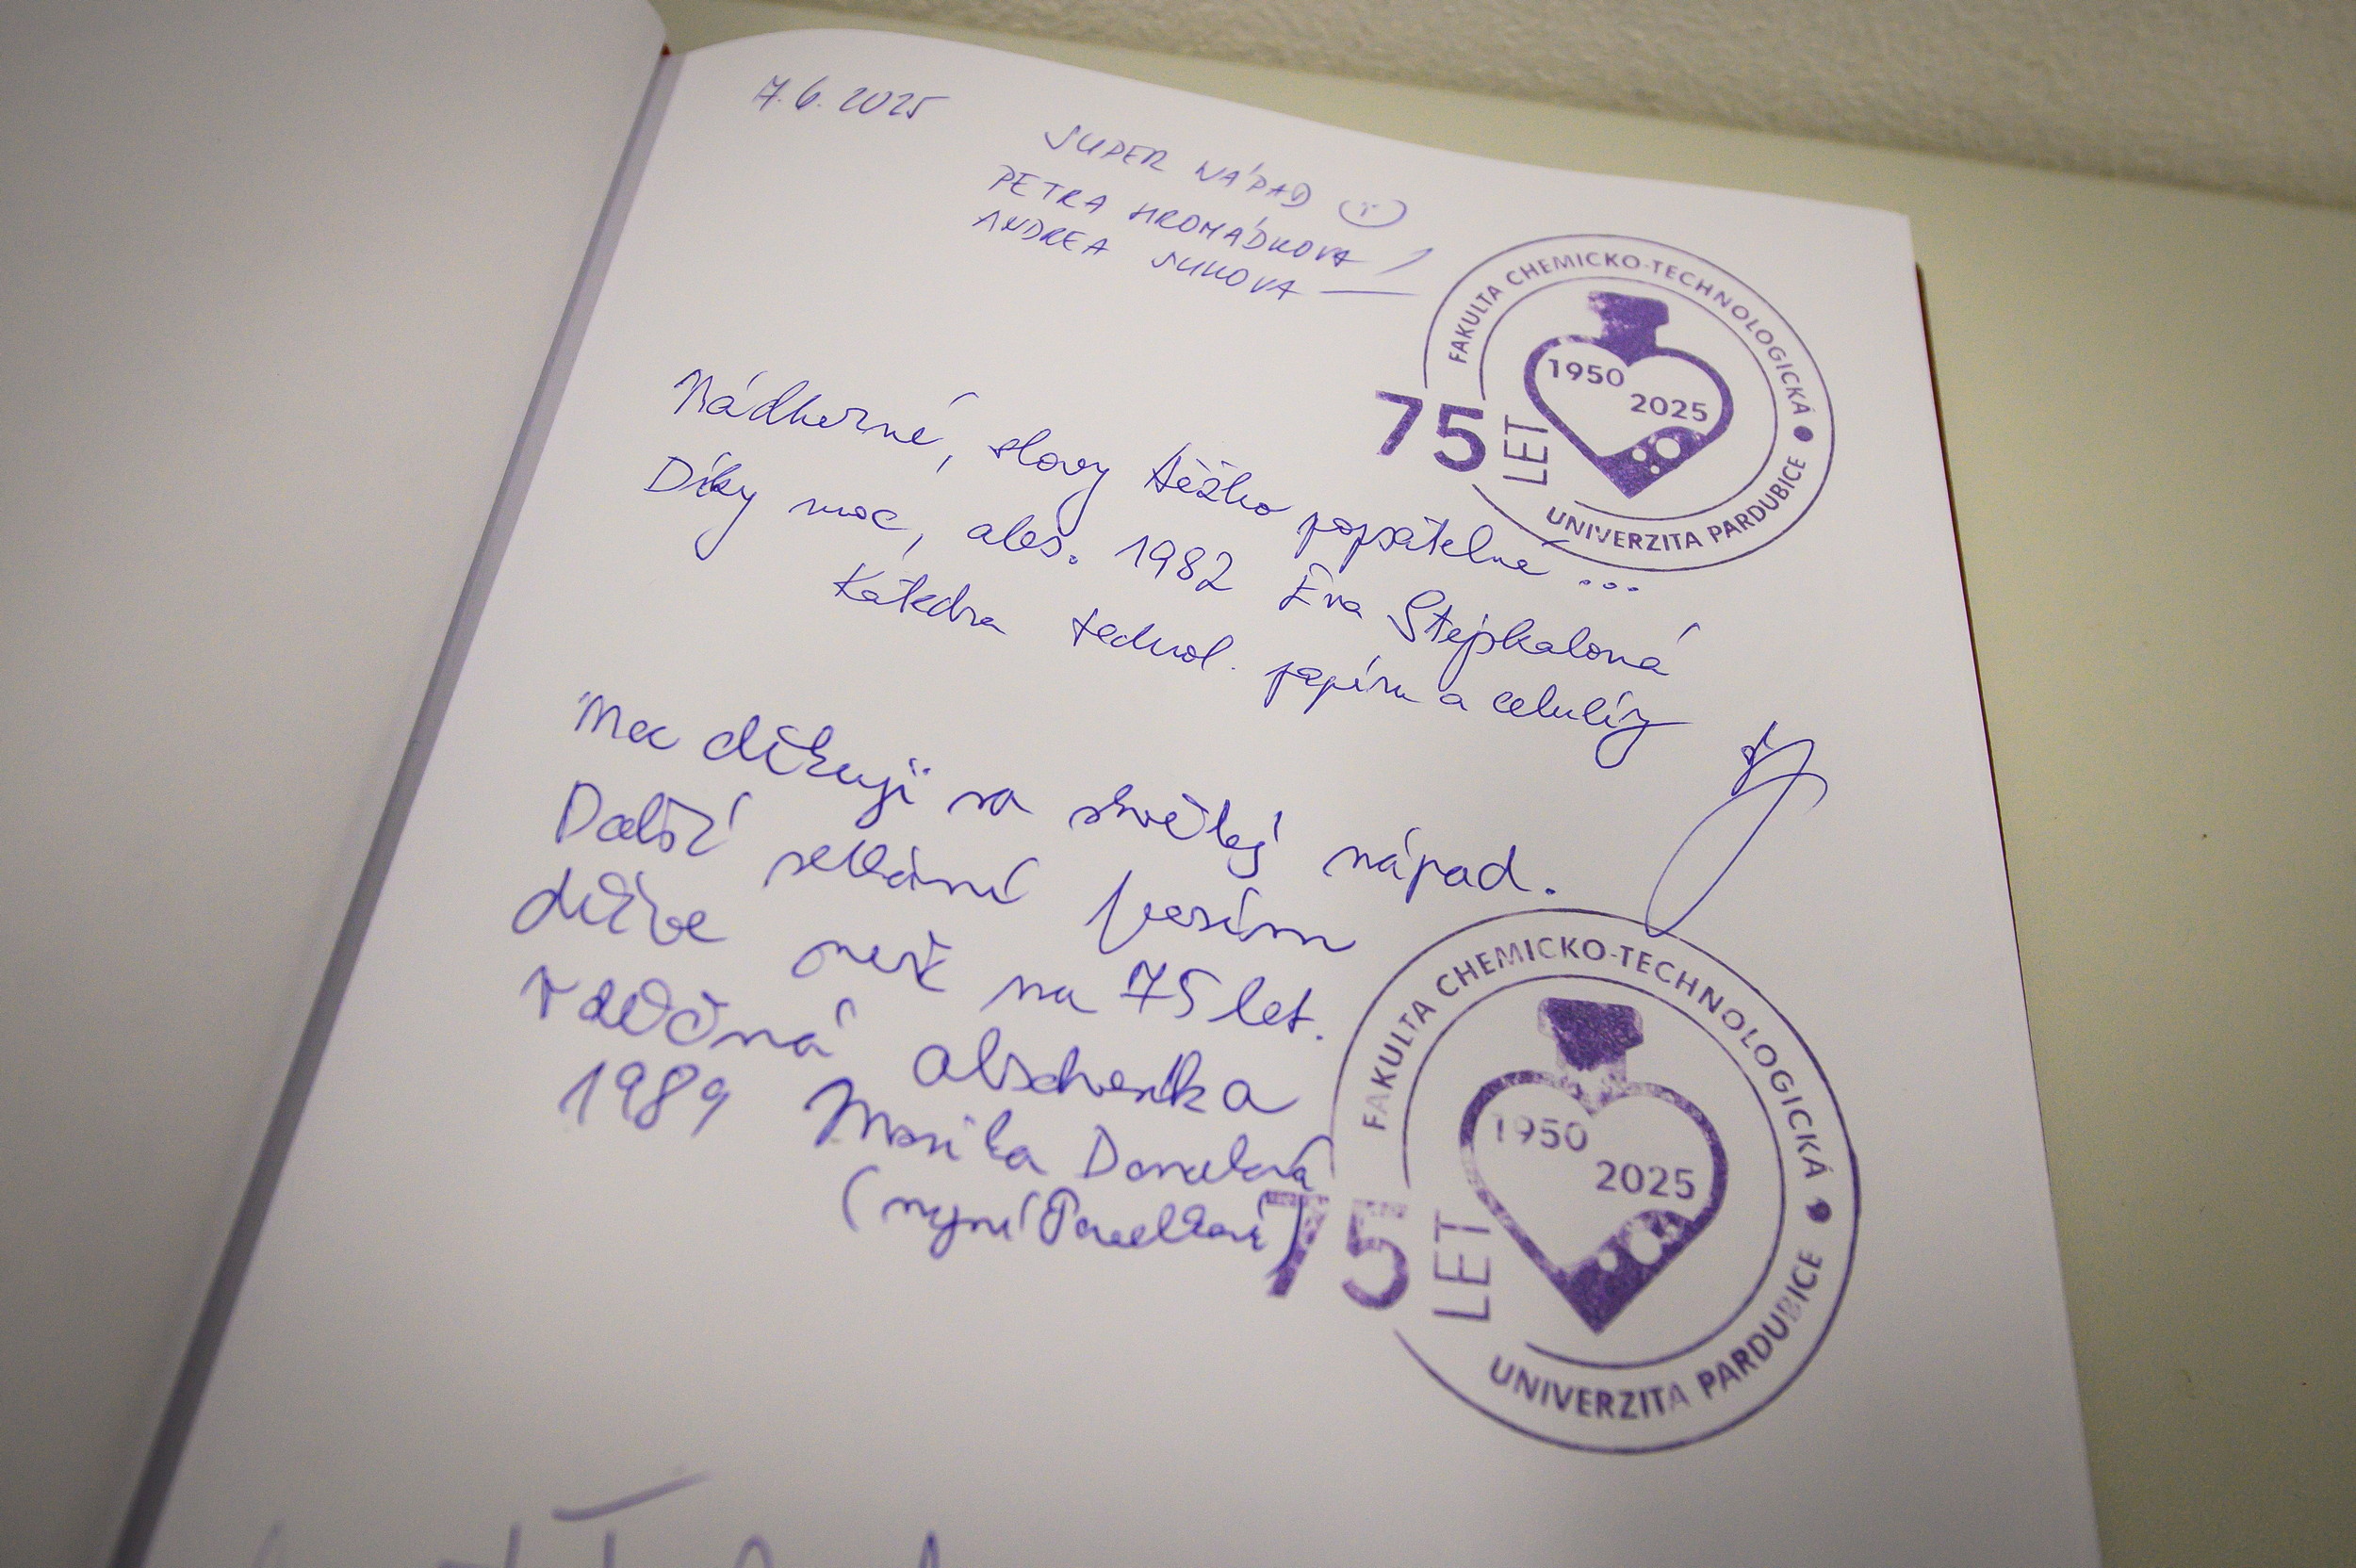 7.6.2025
SUPER NÁPAD
PETRA HROMÁDKOVA
ANDREA SUKOVA
FAKULTA CHEMICKO-TECHNOLOGICKÁ
1950
2025
75 LET
UNIVERZITA PARDUBICE
Nádherné, slovy těžko popsatelné ...
Díky moc, abs. 1982 Eva Stejskalová
Katedra technol. papíru a celulózy
Moc děkuji za skvělý nápad.
Další setkání prosím
dříve než na 75 let.
vděčná absolventka
1989 Monika
(nyní
FAKULTA CHEMICKO-TECHNOLOGICKÁ
1950
2025
75 LET
UNIVERZITA PARDUBICE